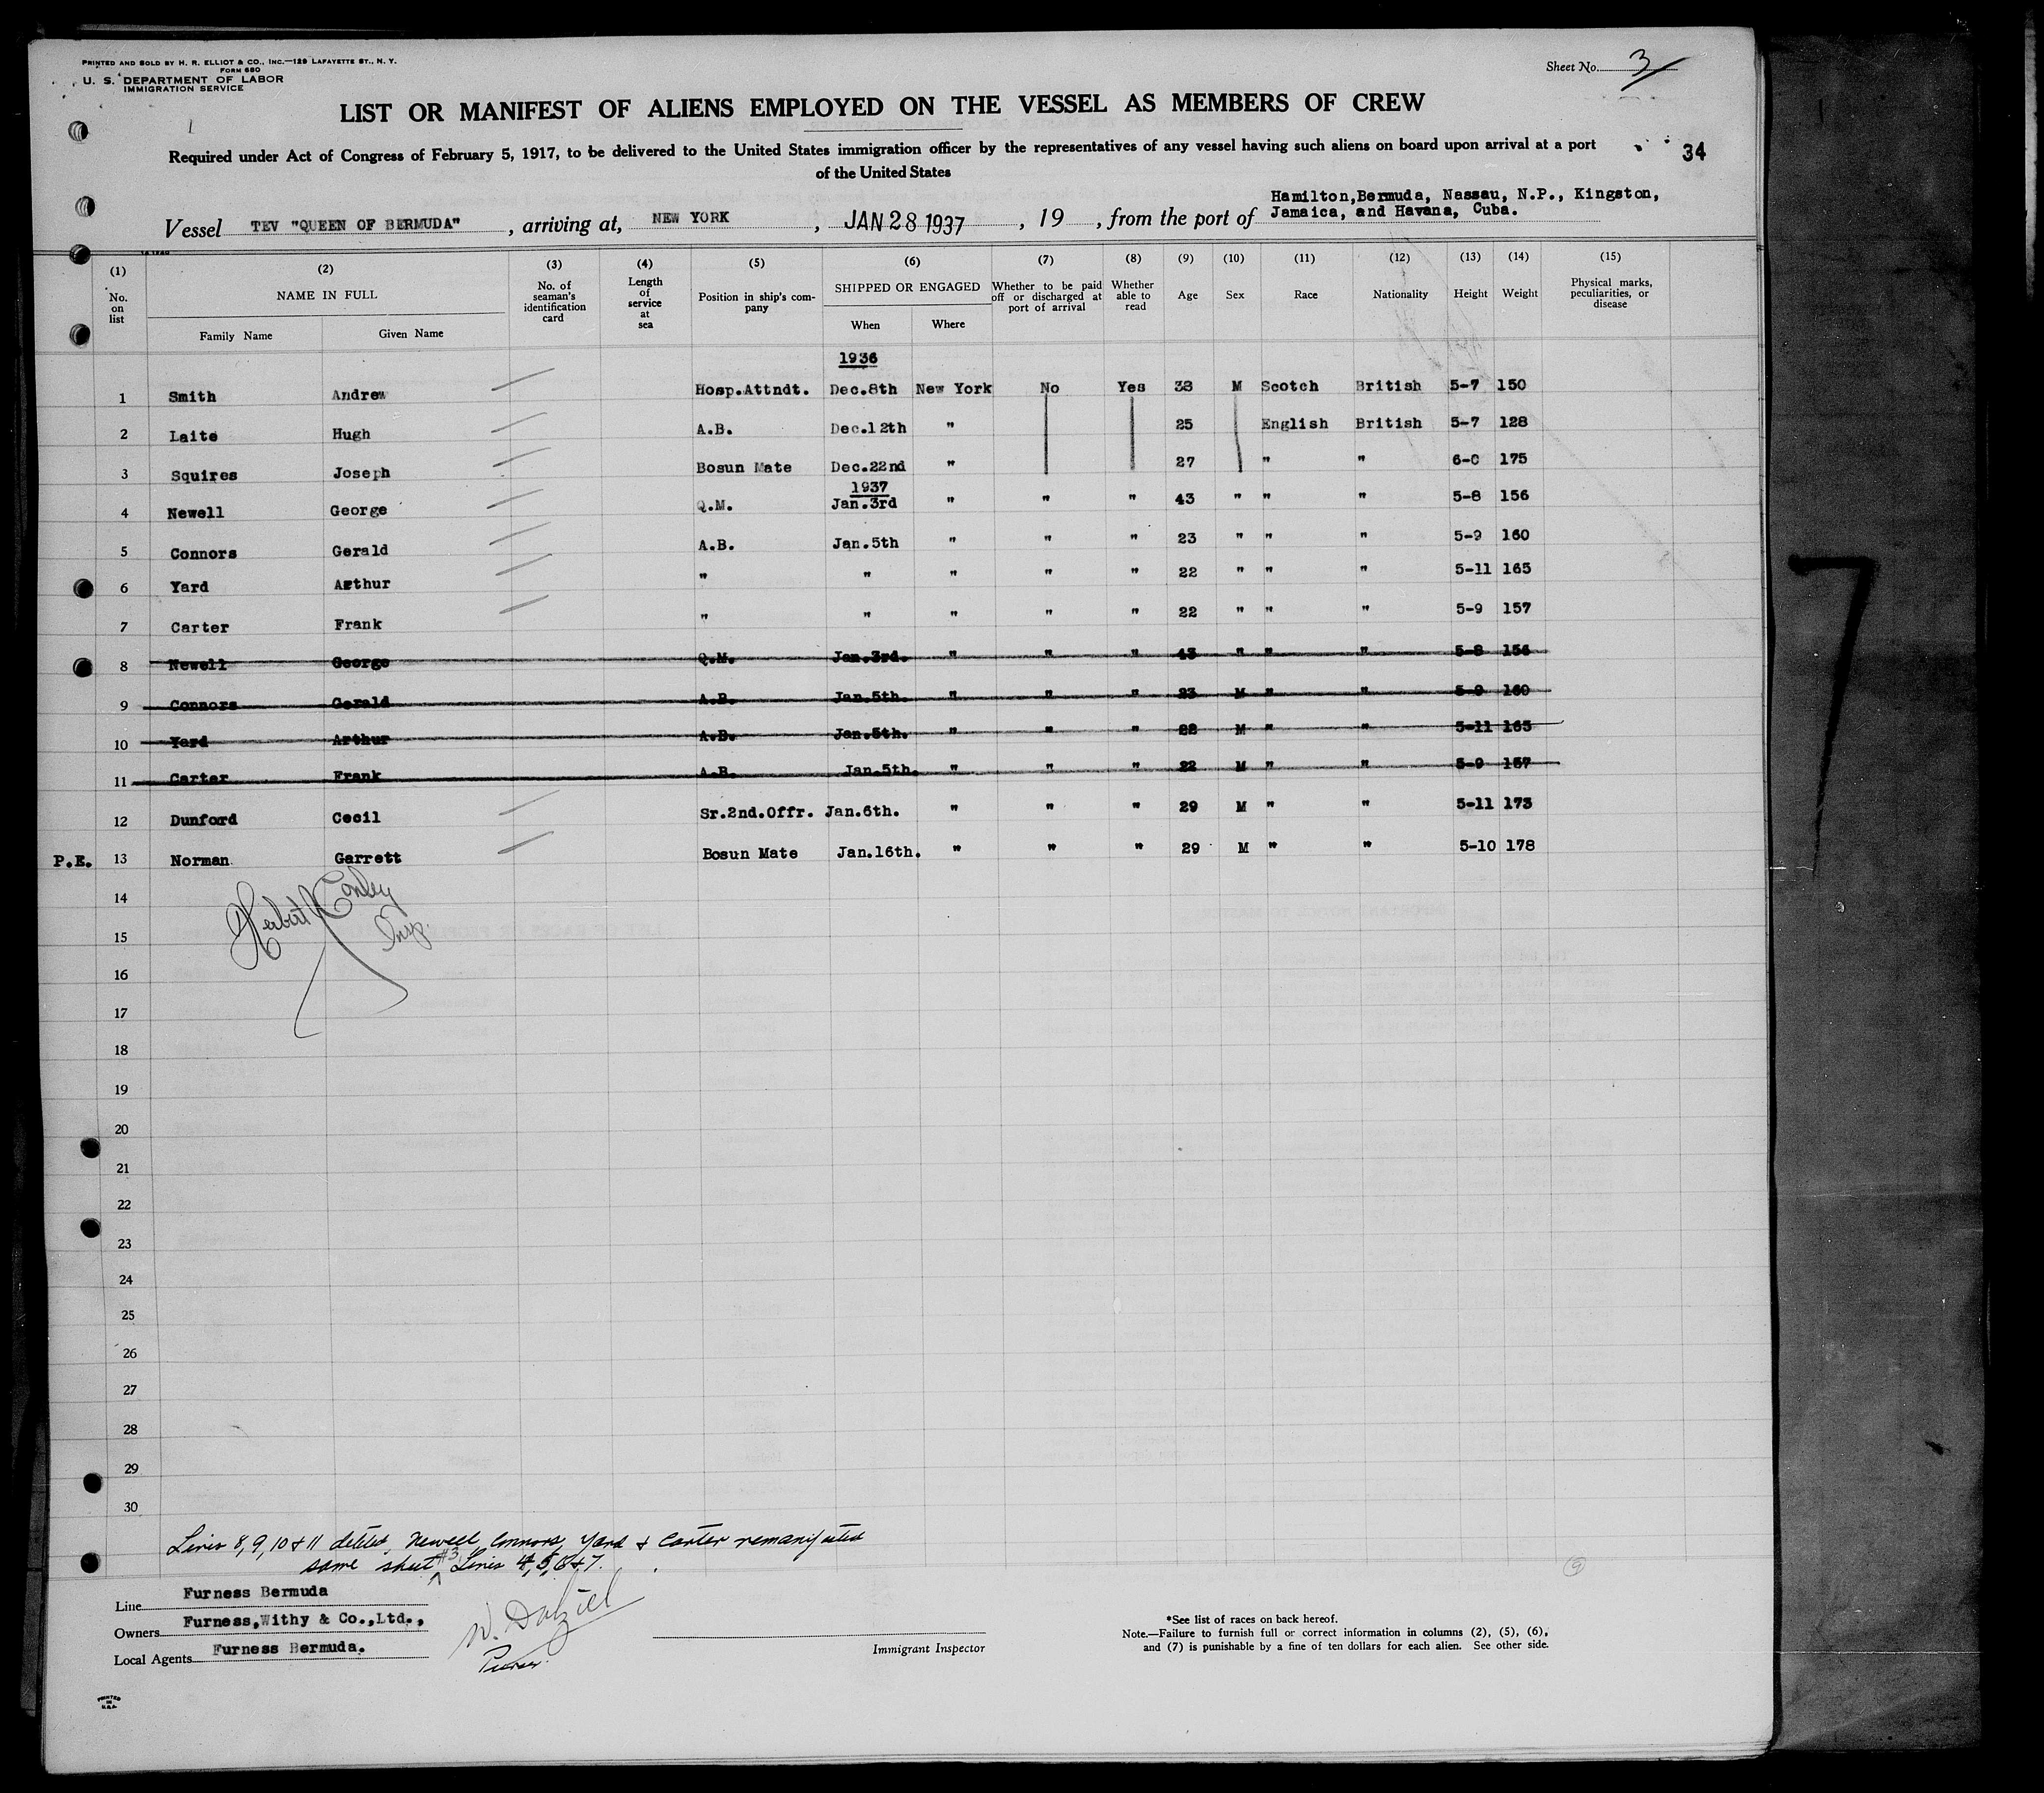 PRINTED AND SOLD BY H. R. ELLIOT & CO., INC.—129 LAFAYETTE ST., N. Y.
FORM 680
U. S. DEPARTMENT OF LABOR
IMMIGRATION SERVICE
Sheet No. 3
LIST OR MANIFEST OF ALIENS EMPLOYED ON THE VESSEL AS MEMBERS OF CREW
Required under Act of Congress of February 5, 1917, to be delivered to the United States immigration officer by the representatives of any vessel having such aliens on board upon arrival at a port
of the United States
34
Vessel TEV "QUEEN OF BERMUDA", arriving at, NEW YORK, JAN 28 1937, 19, from the port of Hamilton,Bermuda, Nassau, N.P., Kingston,
Jamaica, and Havana, Cuba.
(1) No. on list (2) NAME IN FULL Family Name Given Name (3) No. of seaman's identification card (4) Length of service at sea (5) Position in ship's company (6) SHIPPED OR ENGAGED When Where (7) Whether to be paid off or discharged at port of arrival (8) Whether able to read (9) Age (10) Sex (11) Race (12) Nationality (13) Height (14) Weight (15) Physical marks, peculiarities, or disease
1936
1 Smith Andrew Hosp.Attndt. Dec.8th New York No Yes 38 M Scotch British 5-7 150
2 Laite Hugh A.B. Dec.12th " 25 English British 5-7 128
3 Squires Joseph Bosun Mate Dec.22nd " 27 " " 6-0 175
1937
4 Newell George Q.M. Jan.3rd " " " 43 " " " 5-8 156
5 Connors Gerald A.B. Jan.5th " " " 23 " " " 5-9 160
6 Yard Arthur " " " " " 22 " " " 5-11 165
7 Carter Frank " " " " " 22 " " " 5-9 157
8 Newell George Q.M. Jan.3rd. " " " 43 " " " 5-8 156
9 Connors Gerald A.B. Jan.5th. " " " 23 M " " 5-9 160
10 Yard Arthur A.B. Jan.5th. " " " 22 M " " 5-11 165
11 Carter Frank A.B. Jan.5th. " " " 22 M " " 5-9 157
12 Dunford Cecil Sr.2nd.Offr. Jan.6th. " " " 29 M " " 5-11 173
P.E. 13 Norman Garrett Bosun Mate Jan.16th. " " " 29 M " " 5-10 178
14
Herbert Conley
Insp
15
16
17
18
19
20
21
22
23
24
25
26
27
28
29
30
Lines 8, 9, 10 & 11 deleted. Newell, Connors, Yard & Carter remanifested
same sheet #3 Lines 4, 5, 6 & 7.
Line Furness Bermuda
Owners Furness,Withy & Co.,Ltd.,
Local Agents Furness Bermuda.
W. Dalziel
Purser.
Immigrant Inspector
*See list of races on back hereof.
Note.—Failure to furnish full or correct information in columns (2), (5), (6),
and (7) is punishable by a fine of ten dollars for each alien. See other side.
PRINTED
IN
U.S.A.
9
7